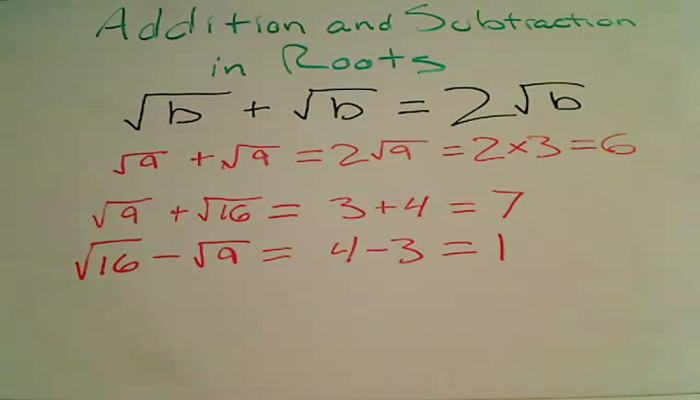 Addition and Subtraction
in Roots
√b + √b = 2√b
√9 + √9 = 2√9 = 2×3 = 6
√9 + √16 = 3+4 = 7
√16 − √9 = 4−3 = 1